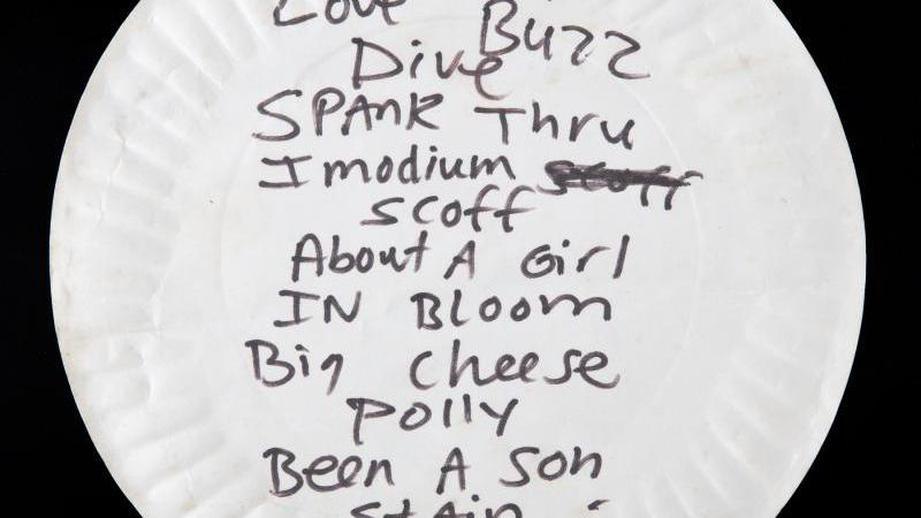 Love Buzz
Dive
SPANK Thru
Imodium scoff
scoff
About A Girl
IN Bloom
Big Cheese
Polly
Been A Son
Stain